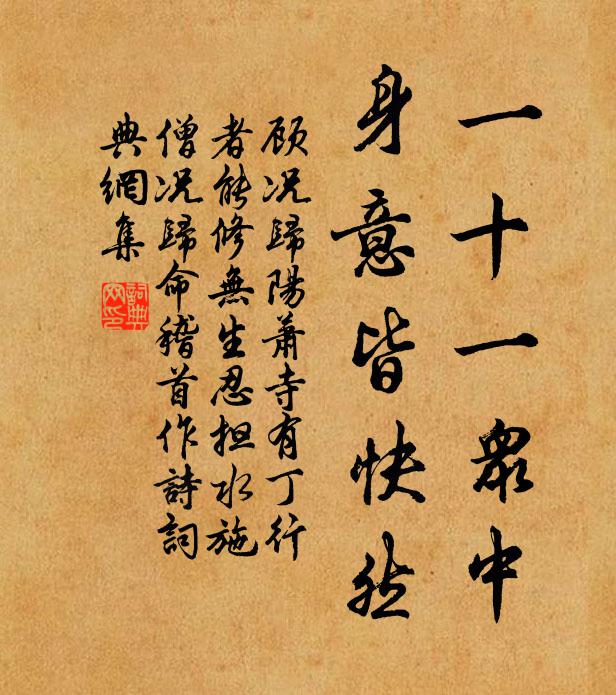 一十一眾中
身意皆快然
顾况歸陽蕭寺有丁行
者能修無生忍担水施
僧况歸命稽首作詩詞
典網集
詞典
网印